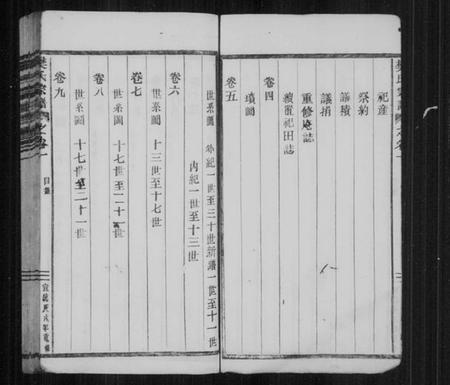 祀產
祭約
議積
議捐
重修庵誌
續置祀田誌
卷四
墳圖
卷五
世系圖 外紀一世至三十世新譜一世至十一世
內紀一世至十三世
卷六
世系圖 十三世至十七世
卷七
世系圖 十七世至二十世
卷八
世系圖 十七世至二十一世
卷九
氏宗譜
卷一
目錄
宣統庚戌年重修